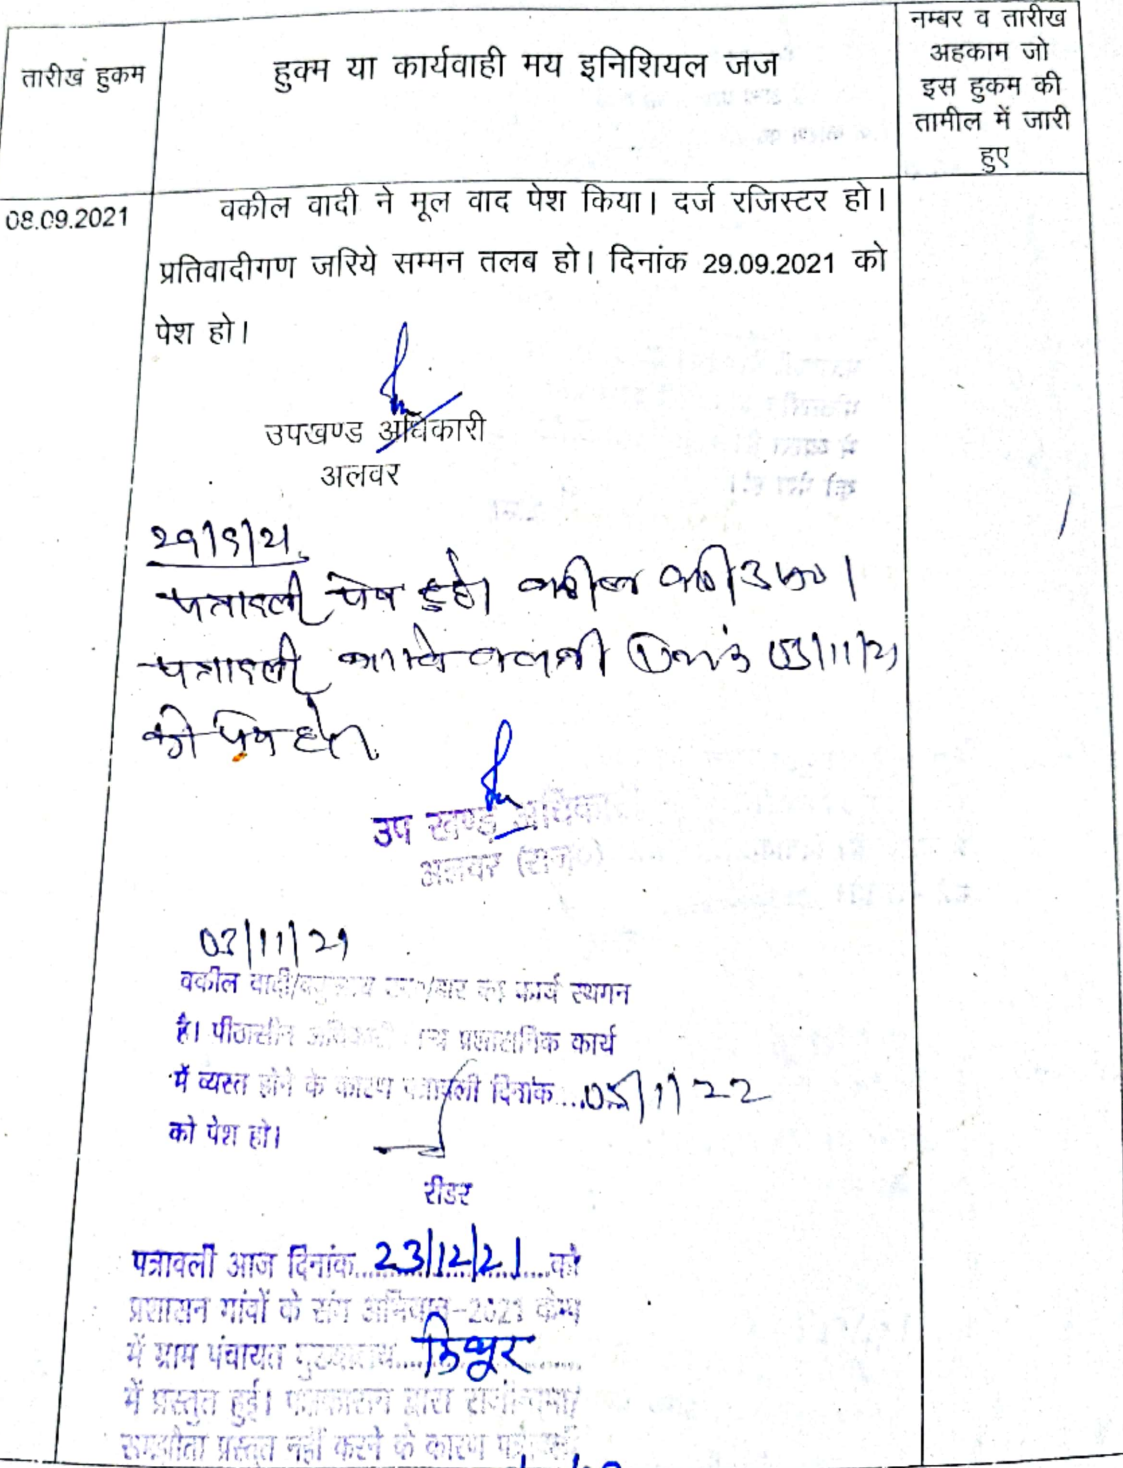 तारीख हुकम
हुक्म या कार्यवाही मय इनिशियल जज
नम्बर व तारीख
अहकाम जो
इस हुकम की
तामील में जारी
हुए
08.09.2021
वकील वादी ने मूल वाद पेश किया। दर्ज रजिस्टर हो।
प्रतिवादीगण जरिये सम्मन तलब हो। दिनांक 29.09.2021 को
पेश हो।
उपखण्ड अधिकारी
अलवर
२९/९/21
पत्रावली पेश हुई। वकील वादी उप०।
पत्रावली 03/11/21
को पेश हो।
उप खण्ड अधिकारी
अलवर (राज०)
03/11/21
वकील वादी/ कार्य स्थगन
है। पीठासीन अधिकारी प्रशासनिक कार्य
में व्यस्त होने के कारण पत्रावली दिनांक....05/1/22
को पेश हो।
रीडर
पत्रावली आज दिनांक..23/12/21...को
प्रशासन गांवों के संग अभियान-2021 केम्प
में ग्राम पंचायत मुख्यालय....
में प्रस्तुत हुई। द्वारा राजीनामा/
समझौता प्रस्तुत नहीं करने के कारण पत्रावली